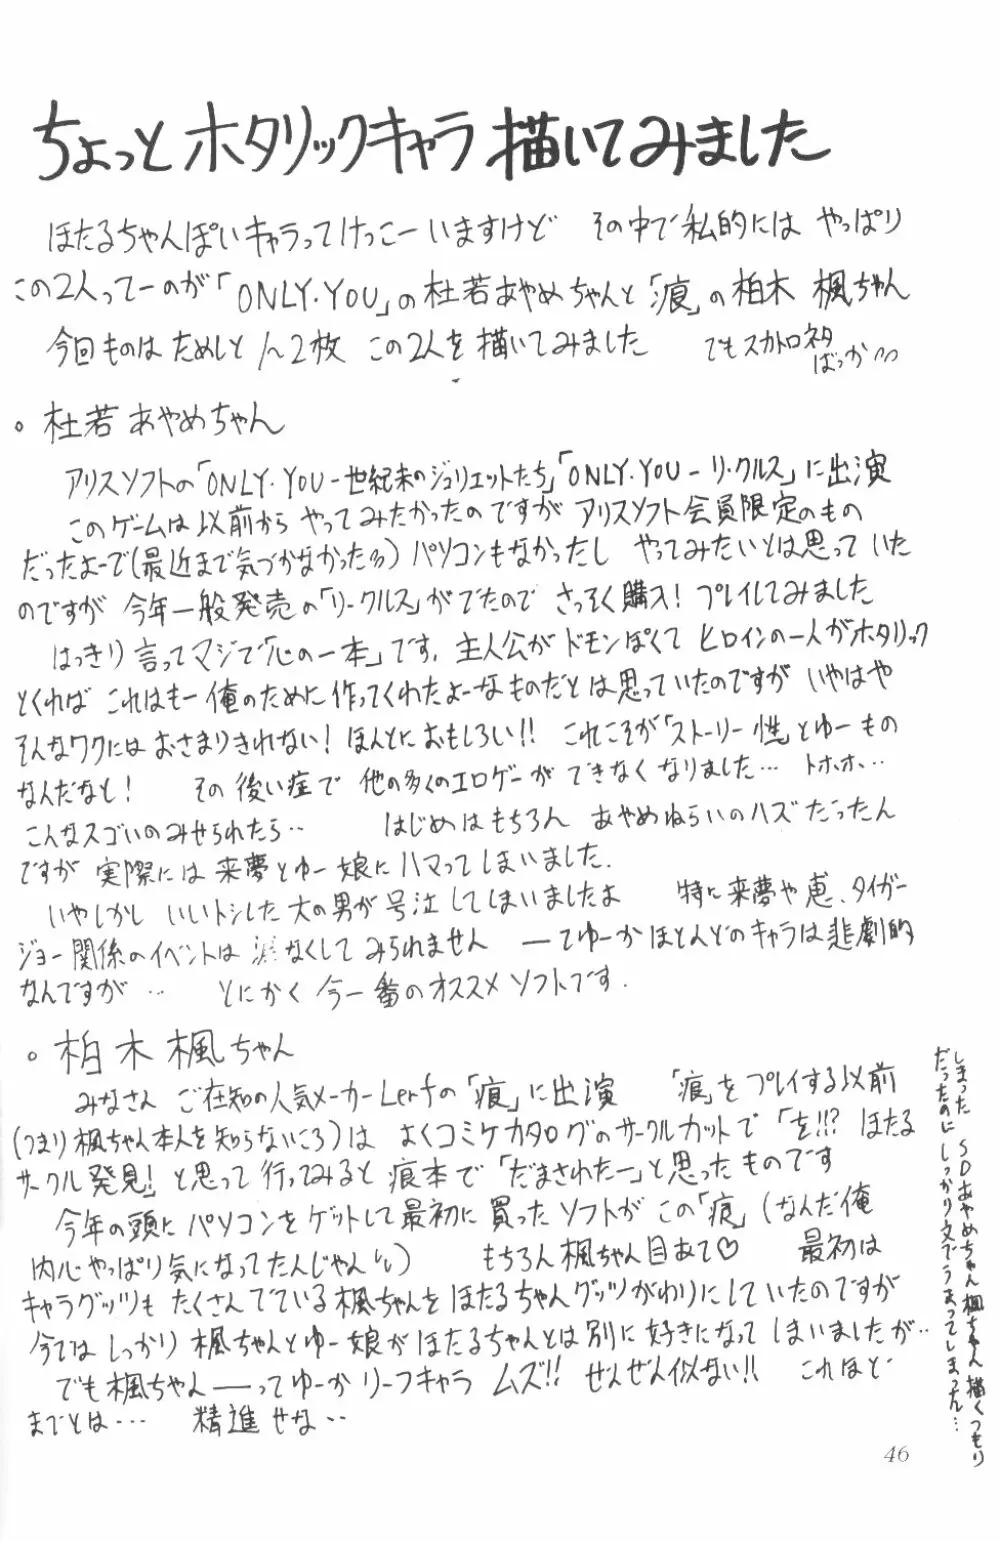 ちょっとホタリックキャラ描いてみました
ほたるちゃんぽいキャラってけっこーいますけど その中で私的には やっぱり
この2人ってーのが「ONLY・YOU」の杜若あやめちゃんと「痕」の柏木 楓ちゃん
今回ものは ためしと 1〜2枚 この2人を描いてみました でもスカトロネタ
ばっか
。杜若あやめちゃん
アリスソフトの「ONLY・YOU-世紀末のジュリエットたち」「ONLY・YOU-リ・クルス」に出演
このゲームは以前から やってみたかったのですが アリスソフト会員限定のもの
だったよーで(最近まで気づかなかった) パソコンもなかったし やってみたいとは思っていた
のですが 今年一般発売の「リ・クルス」がでたので さっそく購入! プレイしてみました
はっきり言ってマジで「心の一本」です. 主人公がドモンぽくて ヒロインの一人がホタリック
とくれば これはもー俺のために作ってくれたよーなものだとは思っていたのですが いやはや
そんなワクにはおさまりきれない! ほんとにおもしろい!! これこそが「ストーリー性」とゆーもの
なんだなと! その後い症で 他の多くのエロゲーができなくなりました… トホホ…
こんなスゴいのみせられたら‥ はじめはもちろん あやめねらいのハズだったん
ですが 実際には来夢とゆー娘にハマってしまいました.
いやしかし いいトシした大の男が号泣してしまいましたよ 特に来夢や恵、タイガー
ジョー関係のイベントは なくしてみられません ーてゆーかほとんどのキャラは悲劇的
なんですが … とにかく 今一番のオススメソフトです.
。柏木楓ちゃん
みなさん ご在知の人気メーカーLerfの「痕」に出演 「痕」をプレイする以前
(つまり楓ちゃん本人を知らないころ)は よくコミケカタログのサークルカットで「を!!? ほたる
サークル発見!」と思って行ってみると 痕本で「だまされたー」と思ったものです
今年の頭にパソコンをゲットして最初に買ったソフトがこの「痕」(なんだ俺
内心やっぱり気になってたんじゃん) もちろん楓ちゃん目あて♡ 最初は
キャラグッツも たくさんでている楓ちゃんをほたるちゃんグッツがわりにしていたのですが
今では しっかり 楓ちゃんとゆー娘がほたるちゃんとは別に好きになってしまいましたが‥
でも楓ちゃん――ってゆーか リーフキャラ ムズ!! ぜんぜん似ない!! これほど
までとは… 精進せな‥
しまった SDあやめちゃん楓ちゃん描くつもり
だったのに しっかり文でうまってしまった…
46